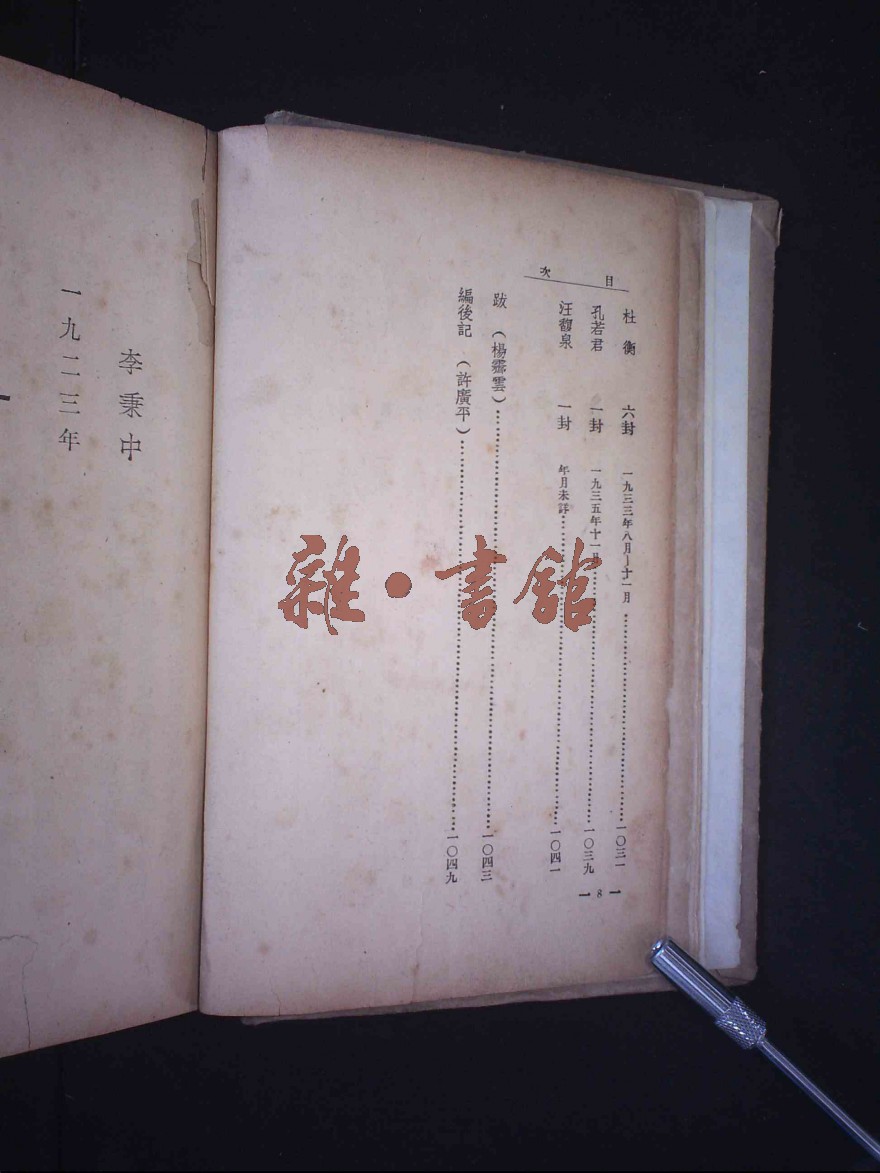 目次
杜衡 六封 一九三三年八月—十一月……一〇三一
孔若君 一封 一九三五年十一月……一〇三九
汪馥泉 一封 年月未詳……一〇四一
跋（楊霽雲）……一〇四三
編後記（許廣平）……一〇四九
— 8 —
李秉中
一九二三年
雜·書館